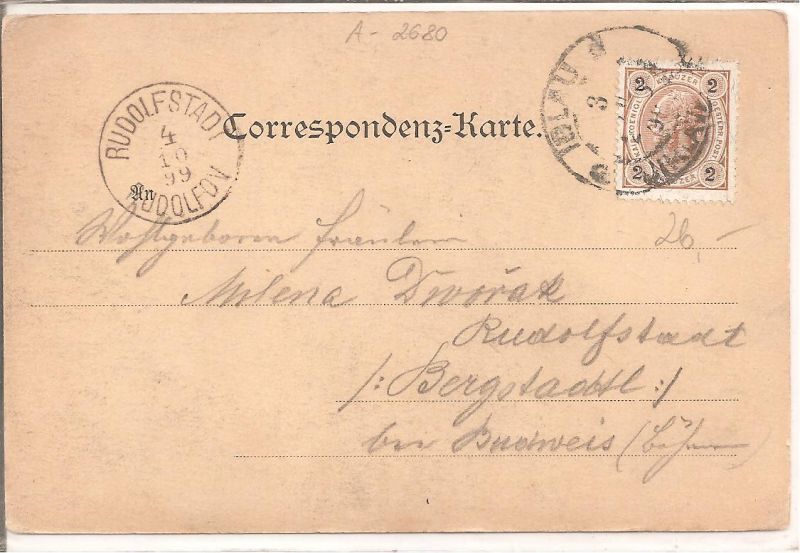 A- 2680
RUDOLFSTADT
4
10
99
RUDOLFOV
Correspondenz-Karte.
IGLAU
3
2 KREUZER 2
KAIS. KOENIGL.
OESTERR. POST
2 KREUZER 2
An
Wohlgeboren Fräulein
26,-
Milena Dwořak
Rudolfstadt
/: Bergstadtl :/
bei Budweis (Böhmen)